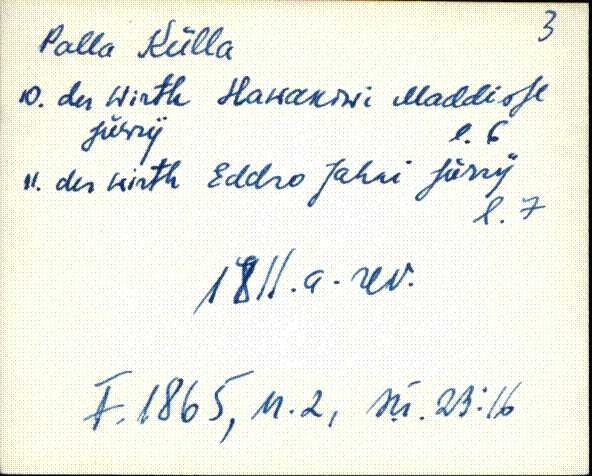 3
Palla Külla
10. der Wirth Hawakiwi Maddisse
Jürry
l. 6
11. der wirth Eddro Jahni Jürry
l. 7
1811. a. rev.
F. 1865, n. 2, sü. 23:16